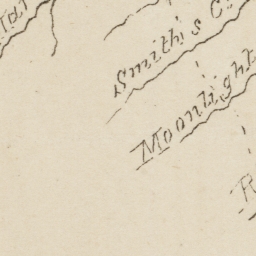 Smith's C
Moonlight
R